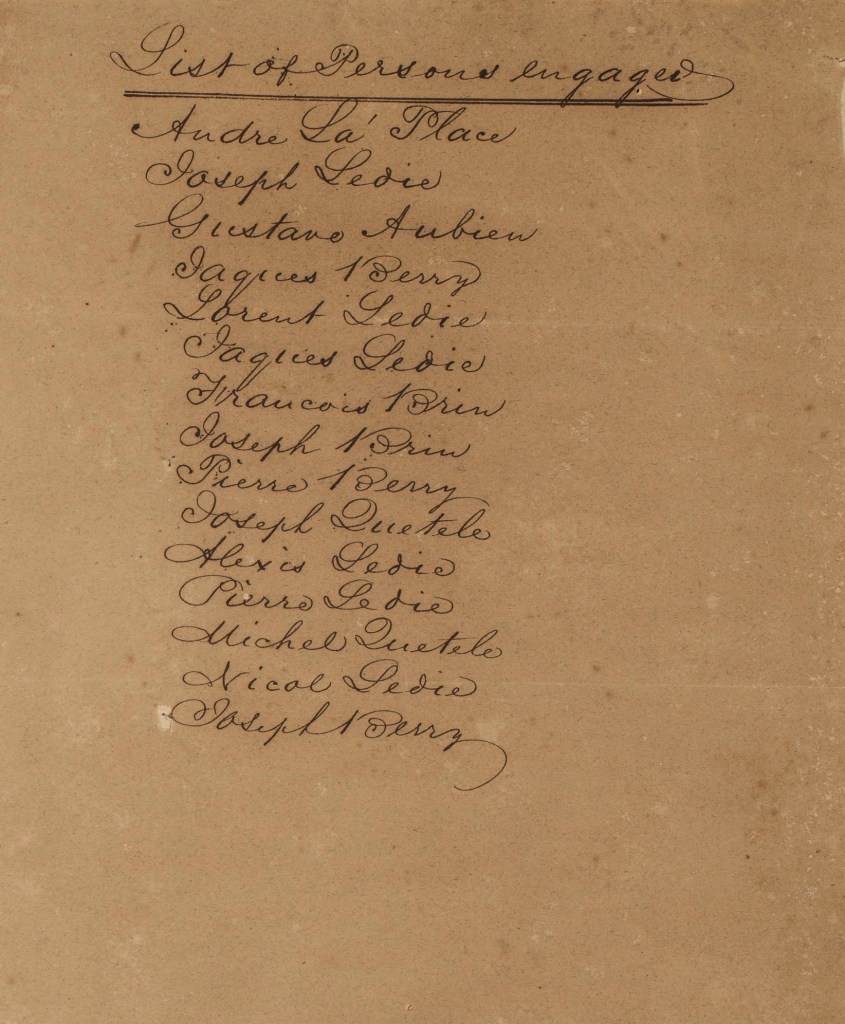 List of Persons engaged
Andre La' Place
Joseph Ledie
Gustave Aubien
Jaques Berry
Lorent Ledie
Jaques Ledie
Francois Brin
Joseph Brin
Pierre Berry
Joseph Quetele
Alexis Ledie
Pierre Ledie
Michel Quetele
Nicol Ledie
Joseph Berry